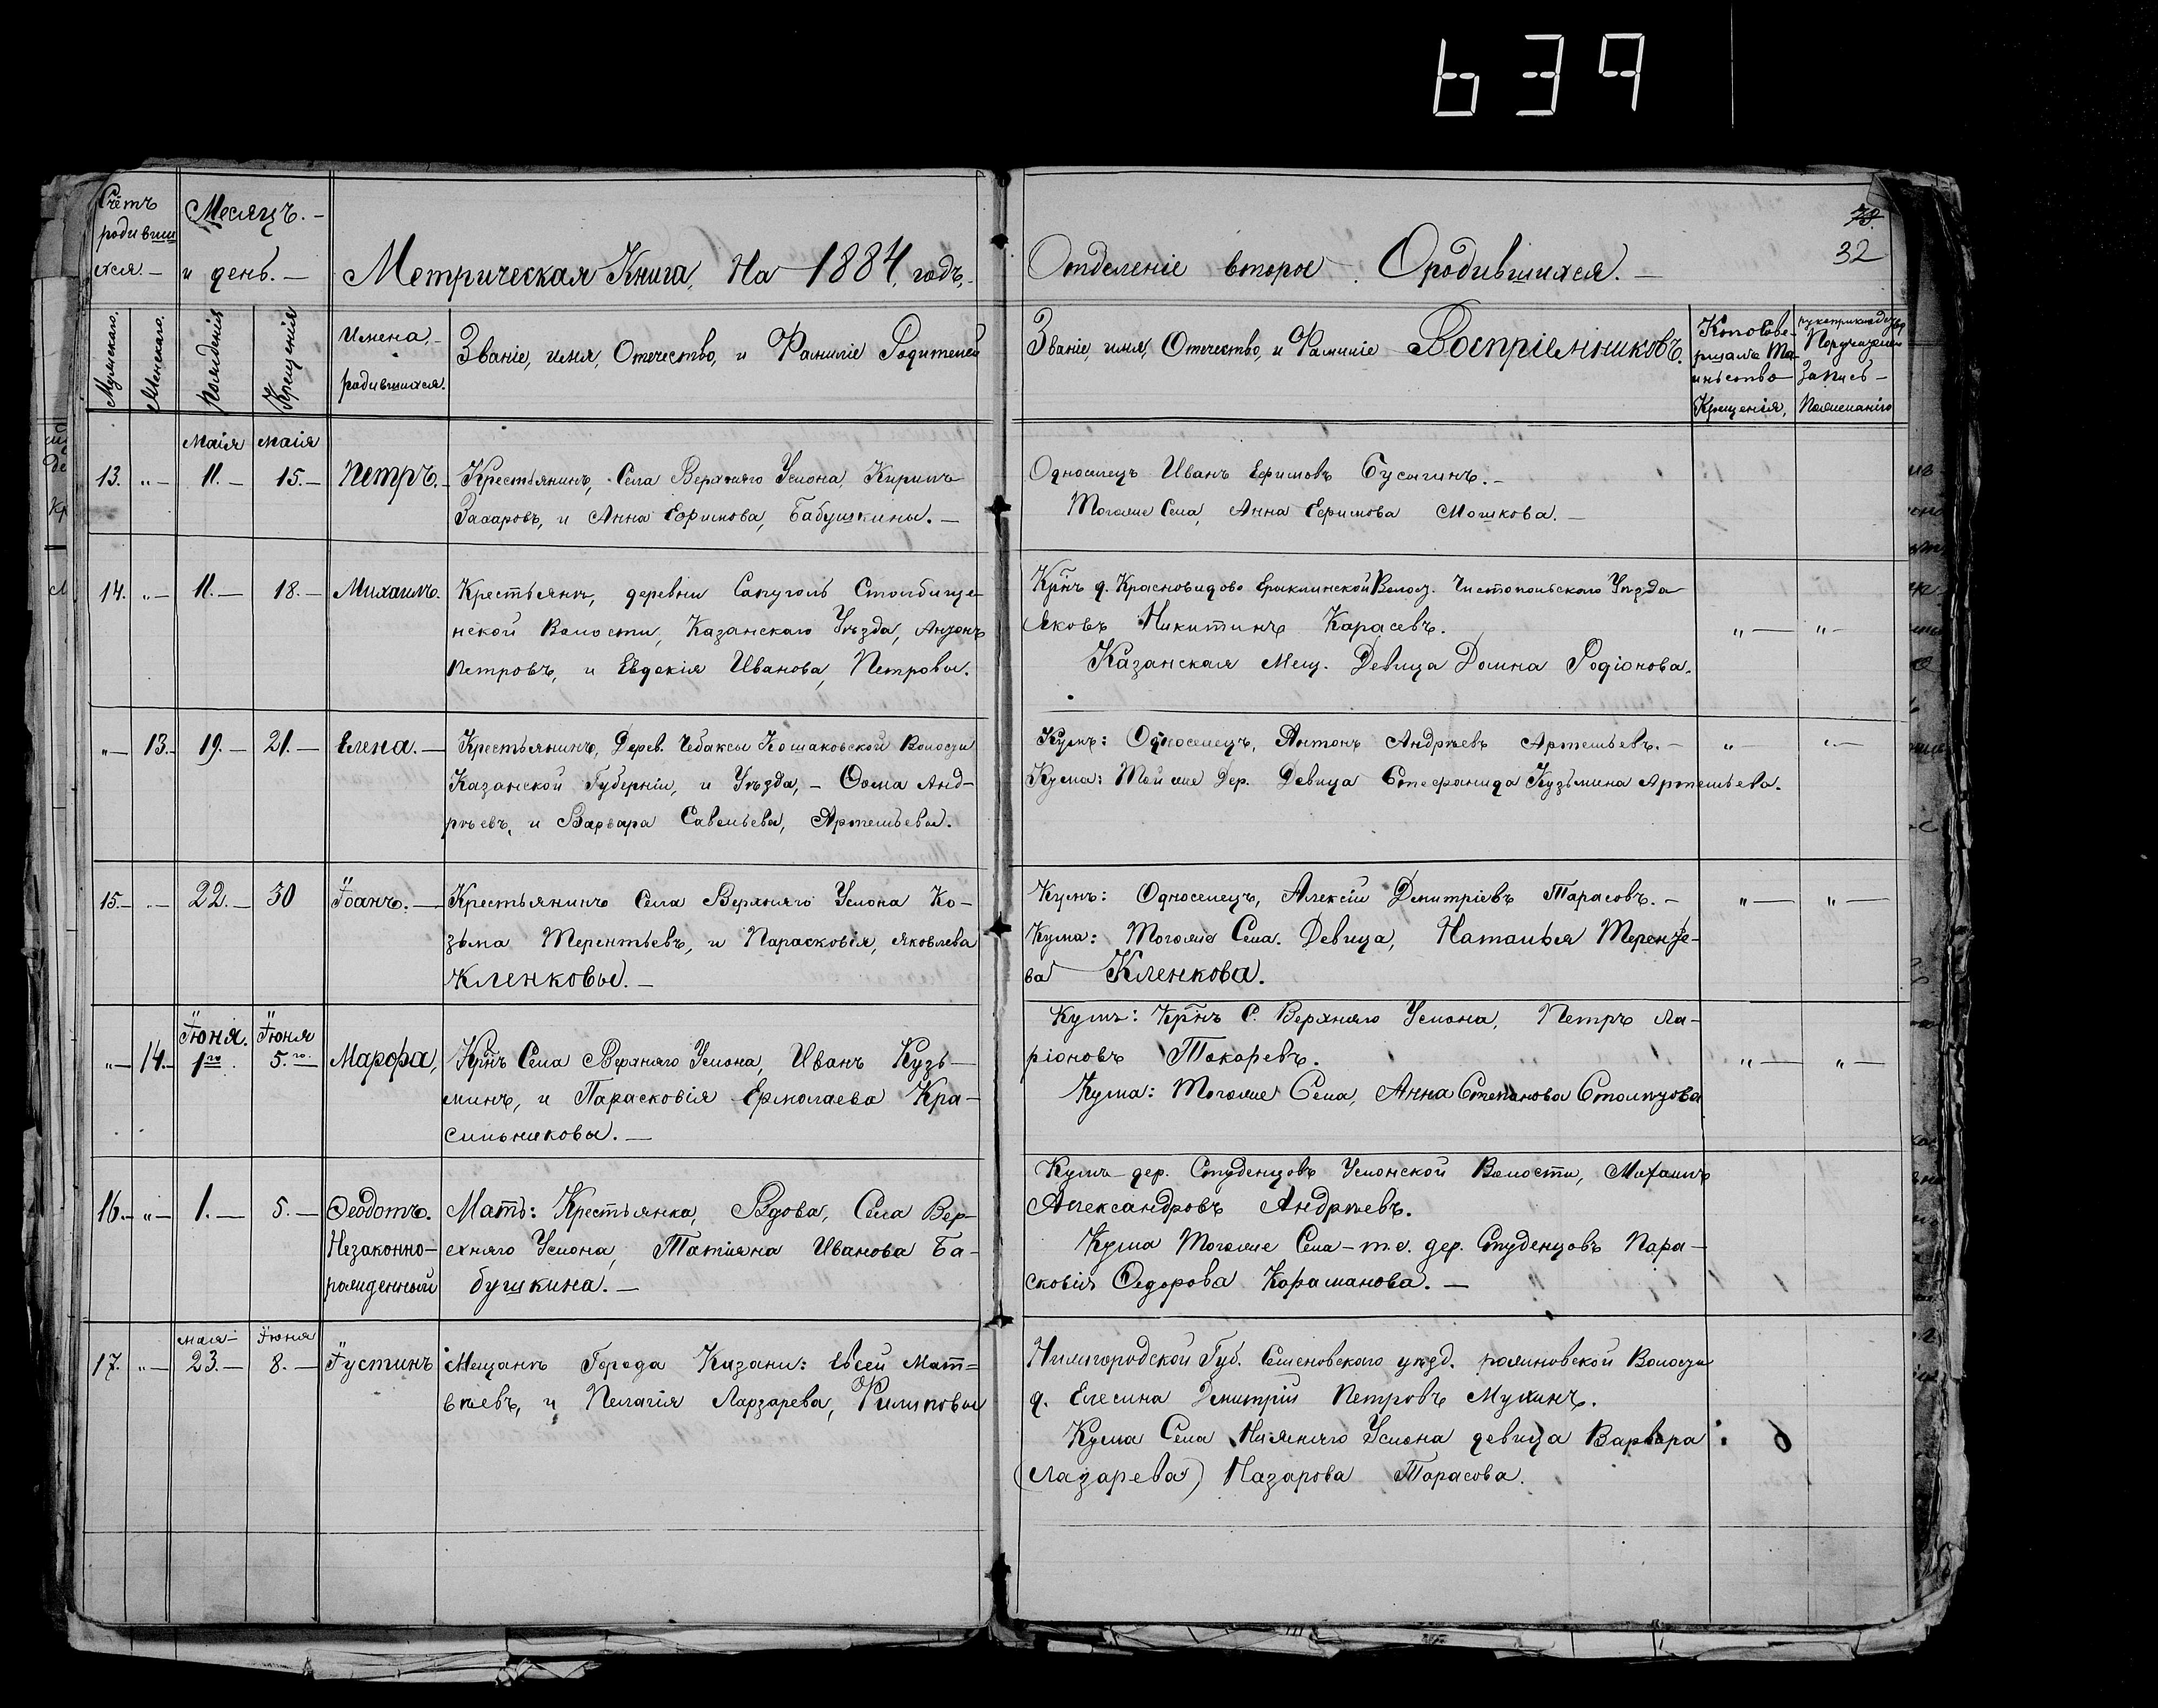 639
Счетъ родивши хся. –
Месяцъ. – и день. –
Метрическая Книга, На 1884, годъ, –
Мужескаго.
Женскаго.
Рождения
Крещения
Имена, – родившихся.
Званіе, имя, Отечество, и Фамиліе Родителей
78.
32
Отделеніе второе. Ородившихся. –
Званіе, имя, Отечество, и Фамиліе Воспріемниковъ.
Кто Сове- ршалъ Та- инъство Крещенія,
Запись
Маія Маія
13. „ – 11. – 15. – Петръ. – Крестьянинъ, Села Верхняго Услона, Кирилъ
Захаровъ, и Анна Ефимова, Бабушкины. –
Односелецъ Иванъ Ефимовъ Бусыгинъ. –
Тогоже Села, Анна Ефимова Мошкова. –
14. „ – 11. – 18. – Михаилъ. Крестьянъ, деревни Сапуголь Столбище-
нской Волости, Казанскаго Уѣзда, Антонъ
Петровъ, и Евдокія Иванова, Петровы.
Крнъ д. Красновидово Ераклинской Волос. Чистопольскаго Уѣзда
Яковъ Никитинъ Карасевъ.
Казанская Мещ. Девица Домна Родіонова.
„ – „ –
„ – 13. – 19. – 21. – Елена. – Крестьянинъ, Дерев. Чебаксы Кощаковской Волости
Казанской Губерніи, и Уѣзда, – Фома Анд-
рѣевъ, и Варвара Савельева, Артемьевы.
Кумъ: Односелецъ, Антонъ Андрѣевъ Артемьевъ. – „ – „ –
Кума: Той же Дер. Девица Стефанида Кузьмина Артемьева.
15. – „ – 22. – 30 Іоанъ. – Крестьянинъ Села Верхняго Услона Ко-
зьма Терентьевъ, и Парасковія, Яковлева
Кленковы. –
Кумъ: Односелецъ, Алексій Дмитріевъ Тарасовъ. – „ – „ –
Кума: Тогоже Села. Девица, Наталья Теренте-
ва Кленкова.
Іюня. Іюня
„ – 14. – 1го. 5.го – Марфа, Крнъ Села Верхняго Услона, Иванъ Кузь-
минъ, и Парасковія Ермолаева Кра-
сильниковы. –
Кумъ: Крнъ С. Верхняго Услона, Петръ Ла-
ріоновъ Токаревъ. „ – „ –
Кума: Тогоже Села, Анна Степанова Столпцова
16. – „ – 1. – 5. – Феодотъ. Мать: Крестьянка, Вдова, Села Вер-
Незаконно- рожденный
ехняго Услона, Татияна Иванова Ба-
бушкина. –
Кумъ дер. Студенцовъ Услонской Волости, Михаилъ
Александровъ Андрѣевъ.
Кума Тогоже Села – т.е. дер. Студенцовъ Пара-
сковія Федорова Караманова. –
мая – Іюня
17. „ – 23. – 8. – Іустинъ Мещанъ Города Казани: Евсей Мат=
вѣевъ, и Пелагія Лазарева, Филиповы
Нижгородской Губ. Семеновскаго уѣзд. рожновской Волости
д. Елесина Дмитрій Петровъ Мухинъ.
Кума Села Нижняго Услона девица Варвара
(Лазарева) Назарова Тарасова.